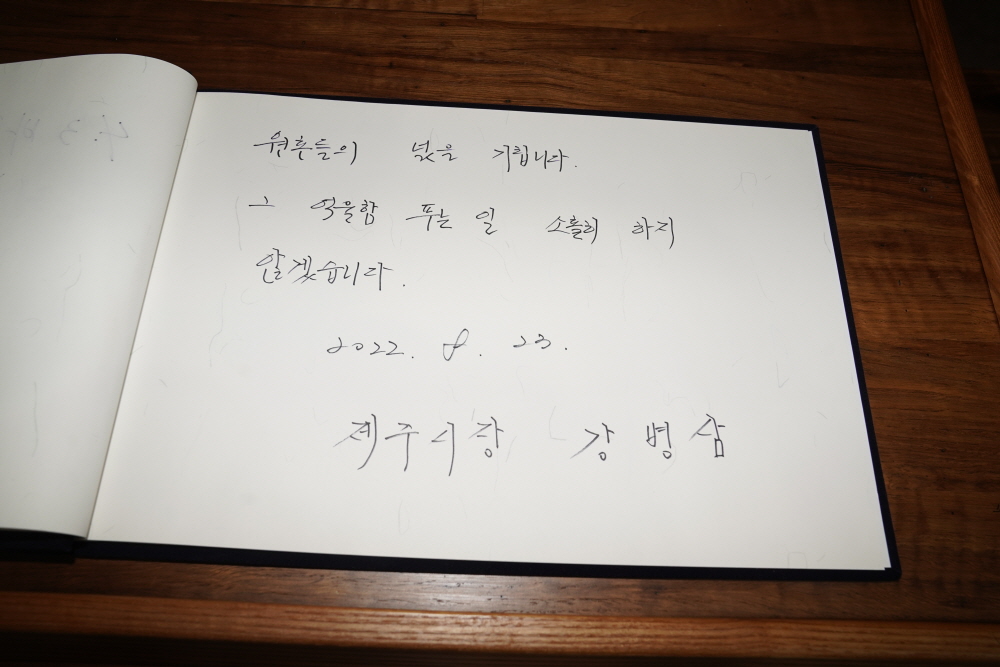 원혼들의 넋을 기립니다.
그 억울함 푸는 일 소홀히 하지
않겠습니다.
2022. 8. 23.
제주시장 강병삼